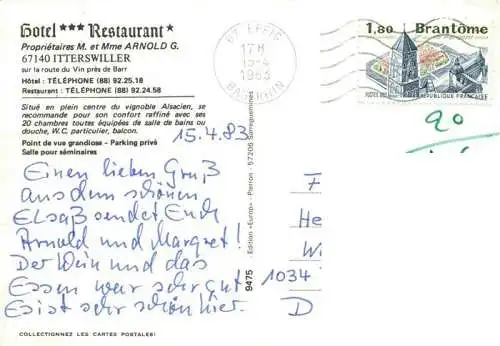 Hotel *** Restaurant *
Propriétaires M. et Mme ARNOLD G.
67140 ITTERSWILLER
sur la route du Vin près de Barr
Hôtel : TÉLÉPHONE (88) 92.25.18
Restaurant : TÉLÉPHONE (88) 92.24.58
Situé en plein centre du vignoble Alsacien, se
recommande pour son confort raffiné avec ses
20 chambres toutes équipées de salle de bains ou
douche, W.C. particulier, balcon.
Point de vue grandiose - Parking privé
Salle pour séminaires
15.4.83
Einen lieben Gruß
aus dem schönen
Elsaß sendet Euch
Arnold und Margret!
Der Wein und das
Essen war sehr gut
Es ist sehr schön hier.
COLLECTIONNEZ LES CARTES POSTALES!
9475 - Edition «Europ» - Pierron - 57206 Sarreguemines
67 EPFIG
17H
15-4
1983
BAS-RHIN
1,80 Brantôme
RÉPUBLIQUE FRANÇAISE
90
F
He
Wi
1034
D